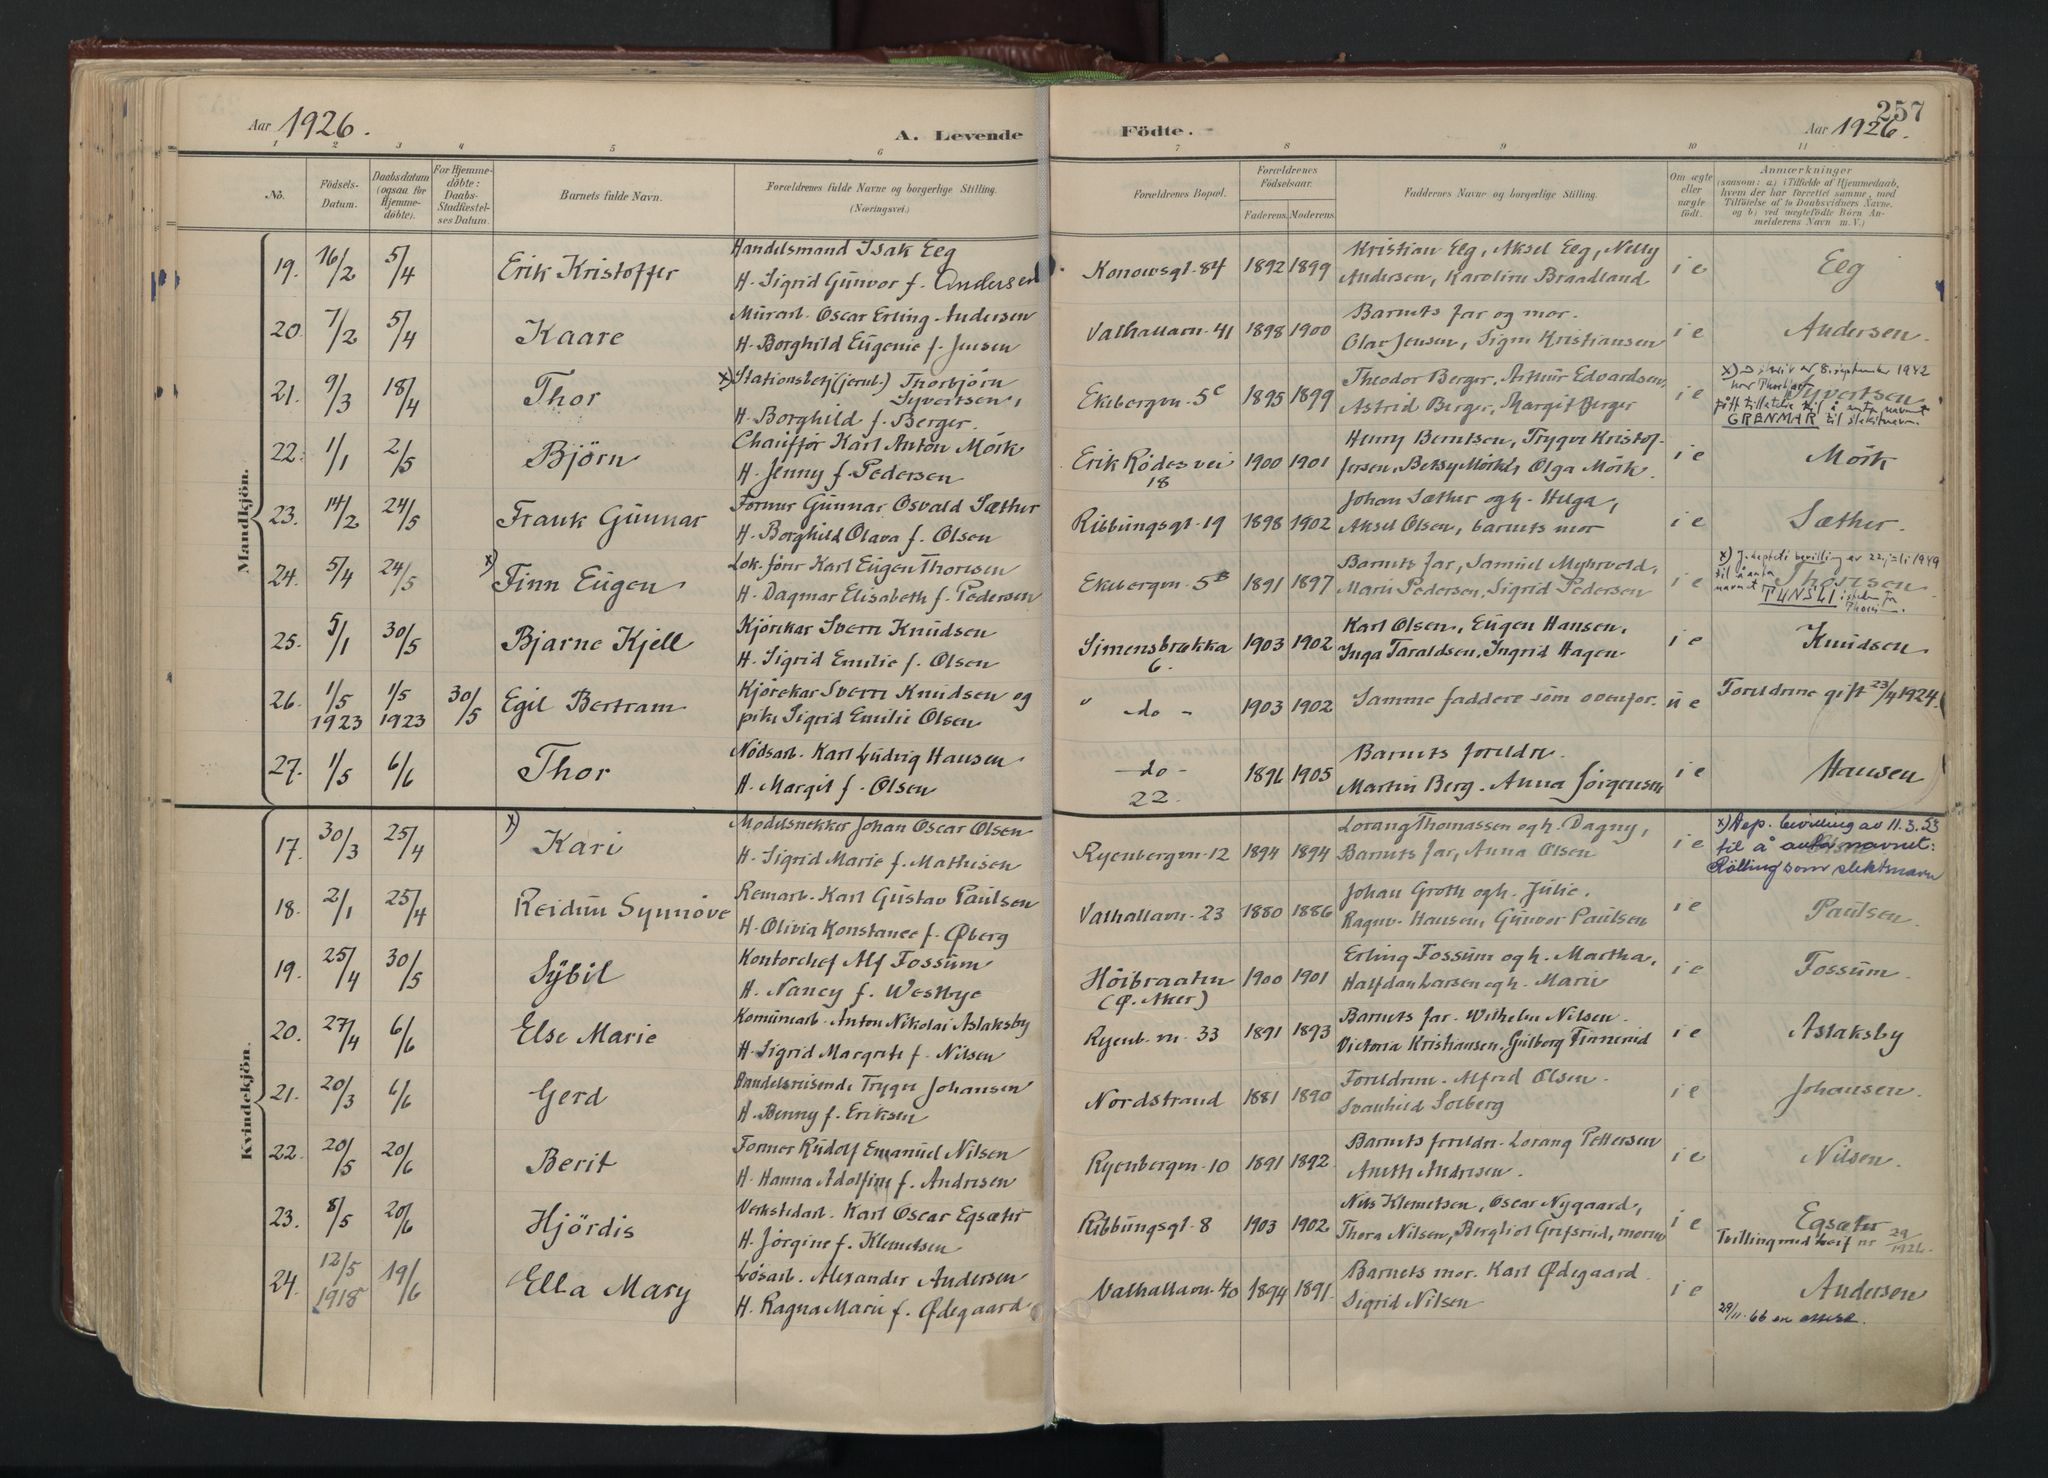 257
Aar 1926.
A. Levende Födte.
Aar 1926.
1 2 3 4 5 6 7 8 9 10 11
No.
Födsels-Datum.
Daabsdatum (ogsaa for Hjemme-döbte).
For Hjemme-döbte: Daabs-Stadfæstel-ses Datum.
Barnets fulde Navn.
Forældrenes fulde Navne og borgerlige Stilling.
(Næringsvei.)
Forældrenes Bopæl.
Forældrenes Födselsaar.
Faderens. Moderens.
Faddernes Navne og borgerlige Stilling.
Om ægte eller uægte födt.
Anmærkninger
(saasom: a.) i Tilfælde af Hjemmedaab,
hvem der har forrettet samme, med
Tilföielse af to Daabsvidners Navne.
og b) ved uægtefödte Börn An-
melderens Navn m. V.)
Mandkjön.
19. 16/2 5/4 Erik Kristoffer
Handelsmand Isak Eeg
H. Sigrid Gunvor f. Andersen
Konowsgt. 84 1892 1899
Kristian Eeg, Aksel Eeg, Nelly
Andersen, Karoline Braadland
i e Eeg
20. 7/2 5/4 Kaare
Murarb. Oscar Erling Andersen
H. Borghild Eugenie f. Jensen
Valhallavn. 41 1898 1900
Barnets far og mor.
Olav Jensen, Signe Kristiansen
i e Andersen.
21. 9/3 18/4 Thor
x) Stationsbetj. (jernb.) Thorbjörn
Syvertsen,
H. Borghild f. Berger.
Ekebergvn. 5c 1895 1899
Theodor Berger, Arthur Edvardsen,
Astrid Berger, Margit Berger
i e Syvertsen
x) 8. september 1942
har Thorbjørn
fått tillatelse til å anta navnet
GRENMAR til slektsnavn.
22. 1/1 2/5 Björn
Chauffør Karl Anton Mörk
H. Jenny f. Pedersen
Erik Rödes vei
18
1900 1901
Henry Berntsen, Trygve Kristof-
fersen, Betsy Mörk, Olga Mörk.
i e Mörk
23. 14/2 24/5 Frank Gunnar
Former Gunnar Osvald Sæther
H. Borghild Olava f. Olsen
Ribbungsgt. 19 1898 1902
Johan Sæther og h. Helga,
Aksel Olsen, barnets mor
i e Sæther.
24. 5/4 24/5 x) Finn Eugen
Lok.förer Karl Eugen Thoresen
H. Dagmar Elisabeth f. Pedersen
Ekebergvn. 5B 1891 1897
Barnets far, Samuel Myhrvold,
Marie Pedersen, Sigrid Pedersen
i e Thoresen
x) J.deptets bevilling av 22 juli 1949
til å anta
navnet TUNSLI
25. 5/1 30/5 Bjarne Kjell
Kjörekar Sverre Knudsen
H. Sigrid Emilie f. Olsen
Simensbrækka
6.
1903 1902
Karl Olsen, Eugen Hansen,
Inga Taraldsen, Ingrid Hagen
i e Knudsen
26. 1/5 1923 1/5 1923 30/5 Egil Bertram
Kjörekar Sverre Knudsen og
pike Sigrid Emilie Olsen
" -do- 1903 1902
Samme faddere som ovenfor.
u e Foreldrene gift 23/4 1924.
27. 1/5 6/6 Thor
Nödsarb. Karl Ludvig Hansen
H. Margit f. Olsen
-do-
22.
1896 1905
Barnets foreldre.
Martin Berg. Anna Jörgensen
i e Hansen
Kvindekjön.
17. 30/3 25/4 x) Kari
Modelsnekker Johan Oscar Olsen
H. Sigrid Marie f. Mathisen
Ryenbergvn. 12 1894 1894
Lorang Thomassen og h. Dagny,
Barnets far, Anna Olsen
i e
x) Dep. bevilling av 11.3.53
til å anta navnet:
Rölling som slektsnavn
18. 2/1 25/4 Reidun Synnöve
Remarb. Karl Gustav Paulsen
H. Olivia Konstance f. Øberg
Valhallavn. 23 1880 1886
Johan Groth og h. Julie.
Ragnv. Hansen, Gunvor Paulsen
i e Paulsen.
19. 25/4 30/5 Sybil
Kontorchef Alf Fossum
H. Nancy f. Westbye
Höibraaten
(Ø. Aker)
1900 1901
Erling Fossum og h. Martha,
Halfdan Larsen og h. Marie
i e Fossum.
20. 27/4 6/6 Else Marie
Komunearb. Anton Nikolai Aslaksby
H. Sigrid Margrete f. Nilsen
Ryenb. vn. 33 1891 1893
Barnets far. Wilhelm Nilsen.
Victoria Kristiansen, Gulborg Finnerud
i e Aslaksby
21. 20/3 6/6 Gerd
Handelsreisende Trygve Johansen
H. Benny f. Eriksen
Nordstrand 1881 1890
Foreldrene. Alfred Olsen.
Svanhild Solberg
i e Johansen.
22. 20/5 20/6 Berit
Former Rudolf Emanuel Nilsen
H. Hanna Adolfine f. Andresen
Ryenbergvn. 10 1891 1892.
Barnets foreldre. Lorang Pettersen
Aneth Andresen.
i e Nilsen.
23. 8/5 20/6 Hjördis
Verkstedarb. Karl Oscar Egsæter
H. Jörgine f. Klemetsen
Ribbungsgt. 8 1903 1902.
Nils Klemetsen, Oscar Nygaard,
Thora Nilsen, Bergliot Grefsrud, moren
i e Egsæter
Tvilling med Leif nr 29/1926.
24. 12/5 1918 19/6 Ella Mary
Lösarb. Alexander Andersen
H. Ragna Marie f. Ødegaard
Valhallavn. 40 1894 1891.
Barnets mor. Karl Ødegaard.
Sigrid Nilsen
i e Andersen
29/11. 66 en attest.